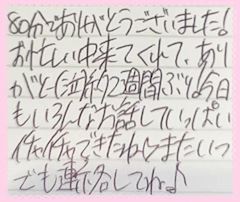 80分でありがとうございました!
お忙しい中来てくれて、あり
がとう(泣)約2週間ぶり!今日
もいろんなお話していっぱい
イチャイチャできたねらまたいつ
でも連絡してね♪